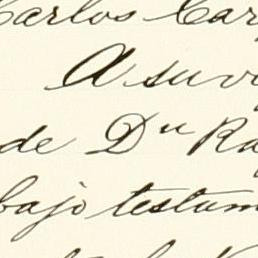 Carlos Car
A su v
de Dⁿ Ra
bajo testam